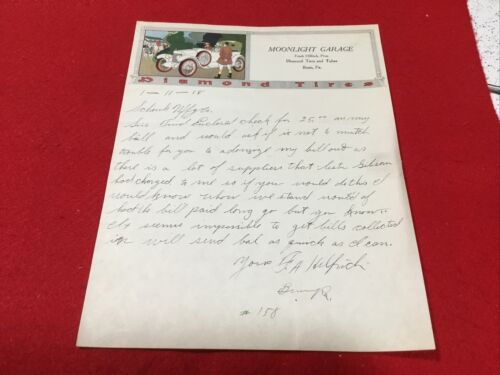 MOONLIGHT GARAGE
Diamond Tires and Tubes
Pa.
Diamond Tires
1-11-18
Schenk Mfg Co.
Sirs find Enclosed check for 25.00 on my
bill and would ask if is not to much
trouble for you to my bill out as
there is a lot of supplies that
had charged to me so if you would do this I
would know where we stand would of
had the bill paid long go but you know
it seems impossible to get bills collected
will send bal as quick as I can.
Yours F. A. Helfrich
# 158